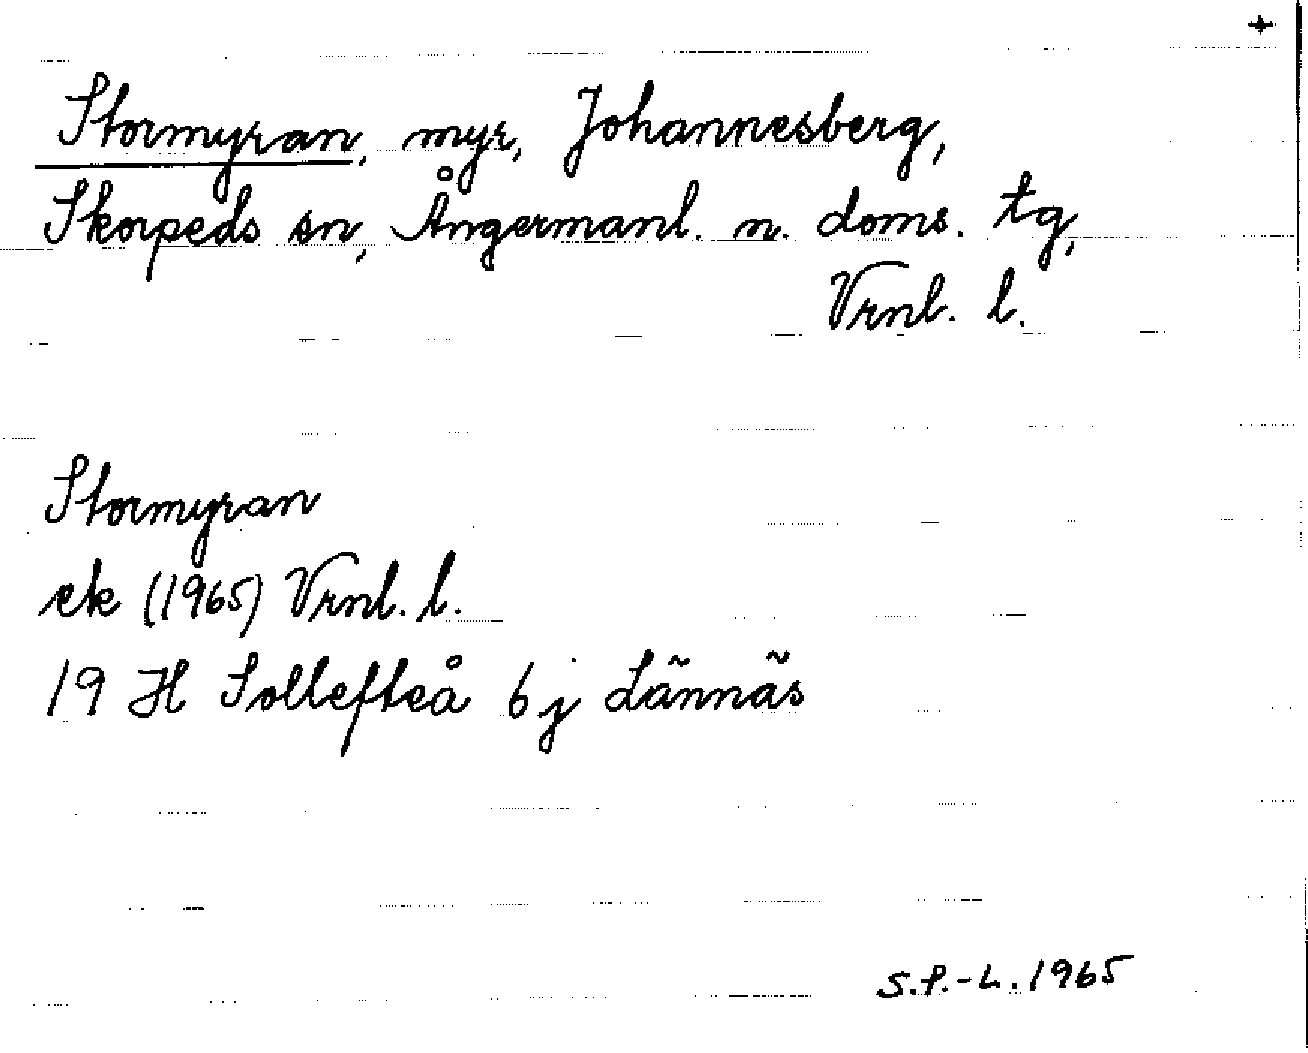 +
Stormyran, myr, Johannesberg,
Skorpeds sn, Ångermanl. n. doms. tg,
Vrnl. l.
Stormyran
ek (1965) Vrnl. l.
19 H Sollefteå 6 j Lännäs
S.P.-L. 1965